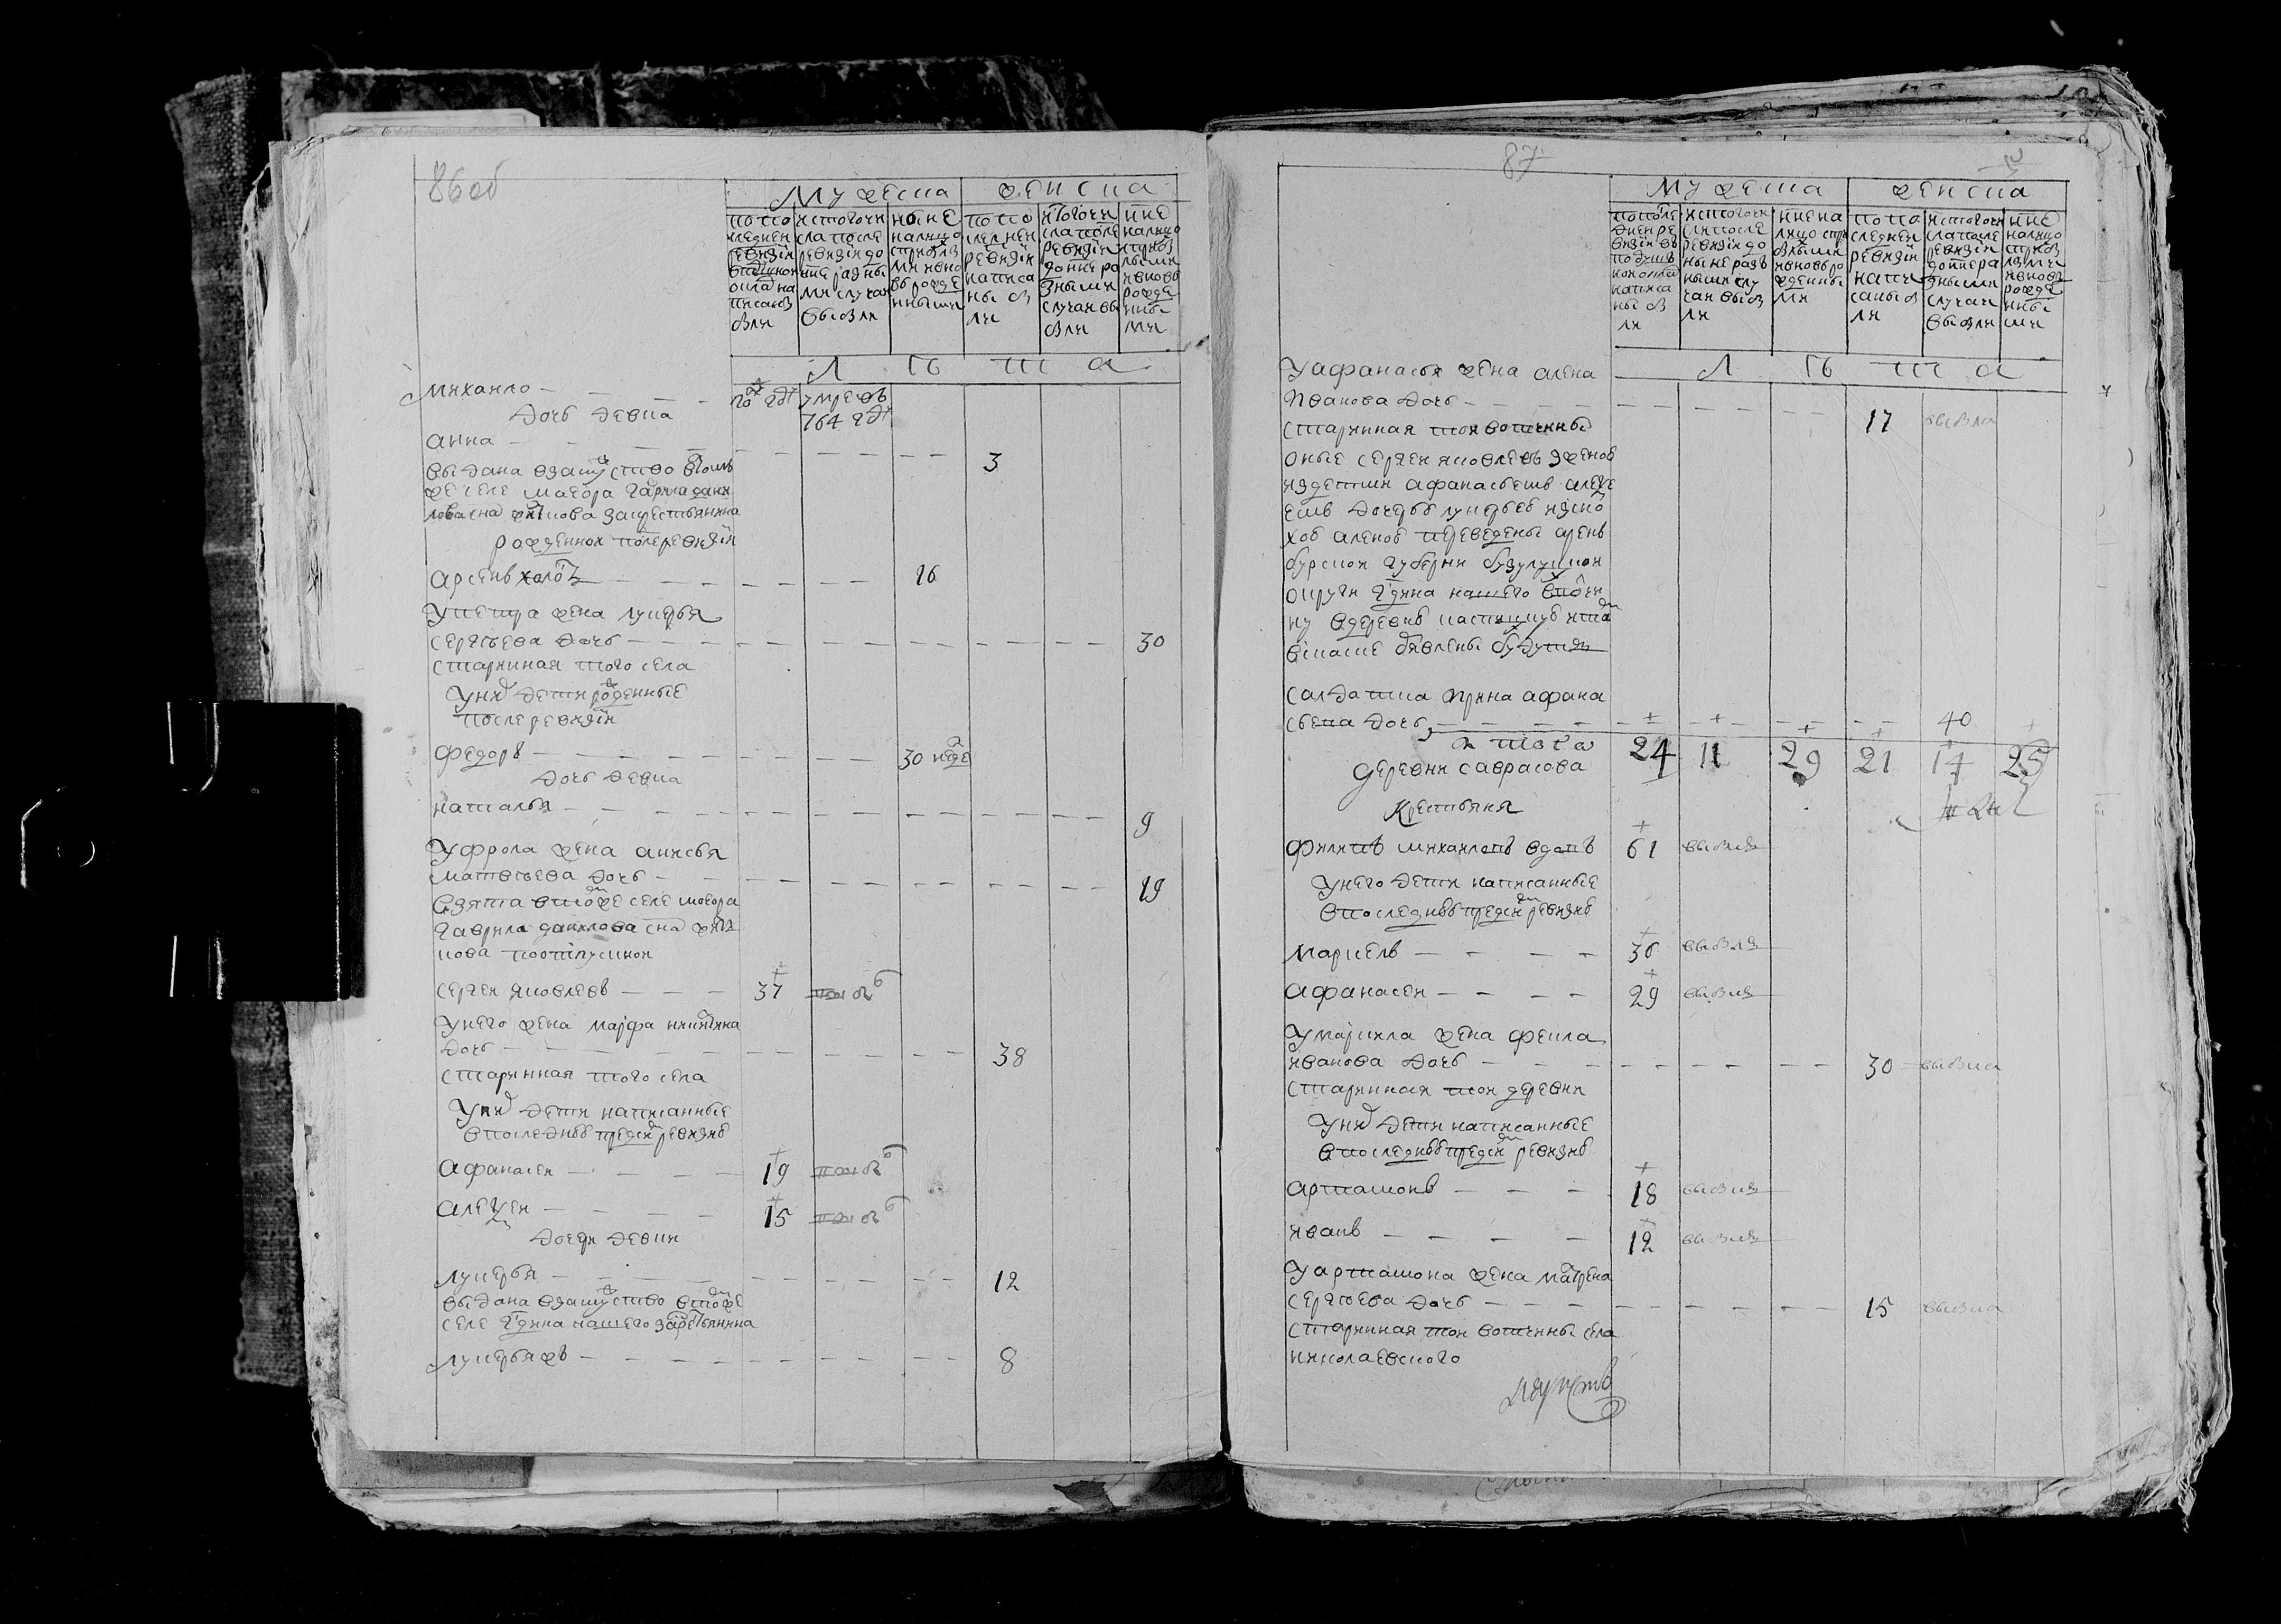 86об
Мужеска женска
по по
следней
ревизии
в подушном
окладе на
писаны
были
ис того чи
сла после
ревизии до
ныне разны
ми случаи
выбыли
ныне
на лицо
с прибылы
ми и внo
вь рожде
нными
по по
следней
ревизии
написа
ны бы
ли
ис того чи
сла после
ревизии
до ныне ра
зными
случаи вы
были
ныне
на лицо
с прибы
лыми
и вновь
рожде
нны
ми
л ѣ т а
Михайло году умре въ
764 году
дочь девка
Анна 3
выдана взамужство в том
же селе маеора Гаврила Дани
лова сна за крестьянина
рожденной после ревизии
Арсений холост 16
У Петра жена Лукерья
Сергеева дочь 30
старинная того села
У них дети рожденные
после ревизии
Федоръ 30 недель
дочь девка
Наталья 9
У Фрола жена Анисья
Матвеева дочь 19
взята в том же селе маеора
Гаврила Данилова сна
по отпускной
Сергей Яковлевъ 37
У него жена Марфа Никитина
дочь 38
старинная того села
У них дети написанные
в последней пред сим ревизии
Афанасей 19
Алексей 15
дочери девки
Лукерья 12
выдана взамужство в том же
селе Гдна нашего за крестьянина
Лукерья жъ 8
87
Мужеска женска
по после
дней ре
визии въ
подушн
ном окла
де написа
ны бы
ли
ис того чи
сла после
ревизии до
ныне разъ
ными слу
чаи выбы
ли
ныне на
лицо с при
былыми
и вновь ро
жденны
ми
по по
следней
ревизии
напи
саны бы
ли
ис того чи
сла после
ревизии
до ныне ра
зными
случаи
выбыли
ныне
на лицо
с прибы
лыми
и вновь
рожде
нны
ми
л ѣ т а
У Афанасья жена Алена
Иванова дочь 17 выбыла
старинная той вотчины
оные Сергей Яковлевъ з женою
и з детми Афанасьемъ Алексе
емъ дочерью Лукерьею и с сно
хою Аленою переведены Орень
бурской губернии Бузулуцкой
округи Гдина нашего вотчи
ну в деревню и там
в скаске объявлены будутъ
салдатка Ирина Афана
сьева дочь 40
Итого 24 11 29 21 17 25
деревни Саврасова
крестьяня
Филипъ Михайловъ вдовъ 61 выбыл
У него дети написанные
в последней пред сим ревизии
Маркелъ 36 выбыл
Афанасей 29 выбыл
У Маркила жена Фекла
Иванова дочь 30 выбыла
старинная той деревни
У них дети написанные
в последней пред сим ревизии
Артамонъ 18 выбыл
Иванъ 12 выбыл
У Артамона жена Матрена
Сергеева дочь 15 выбыла
старинная той вотчины села
Николаевского